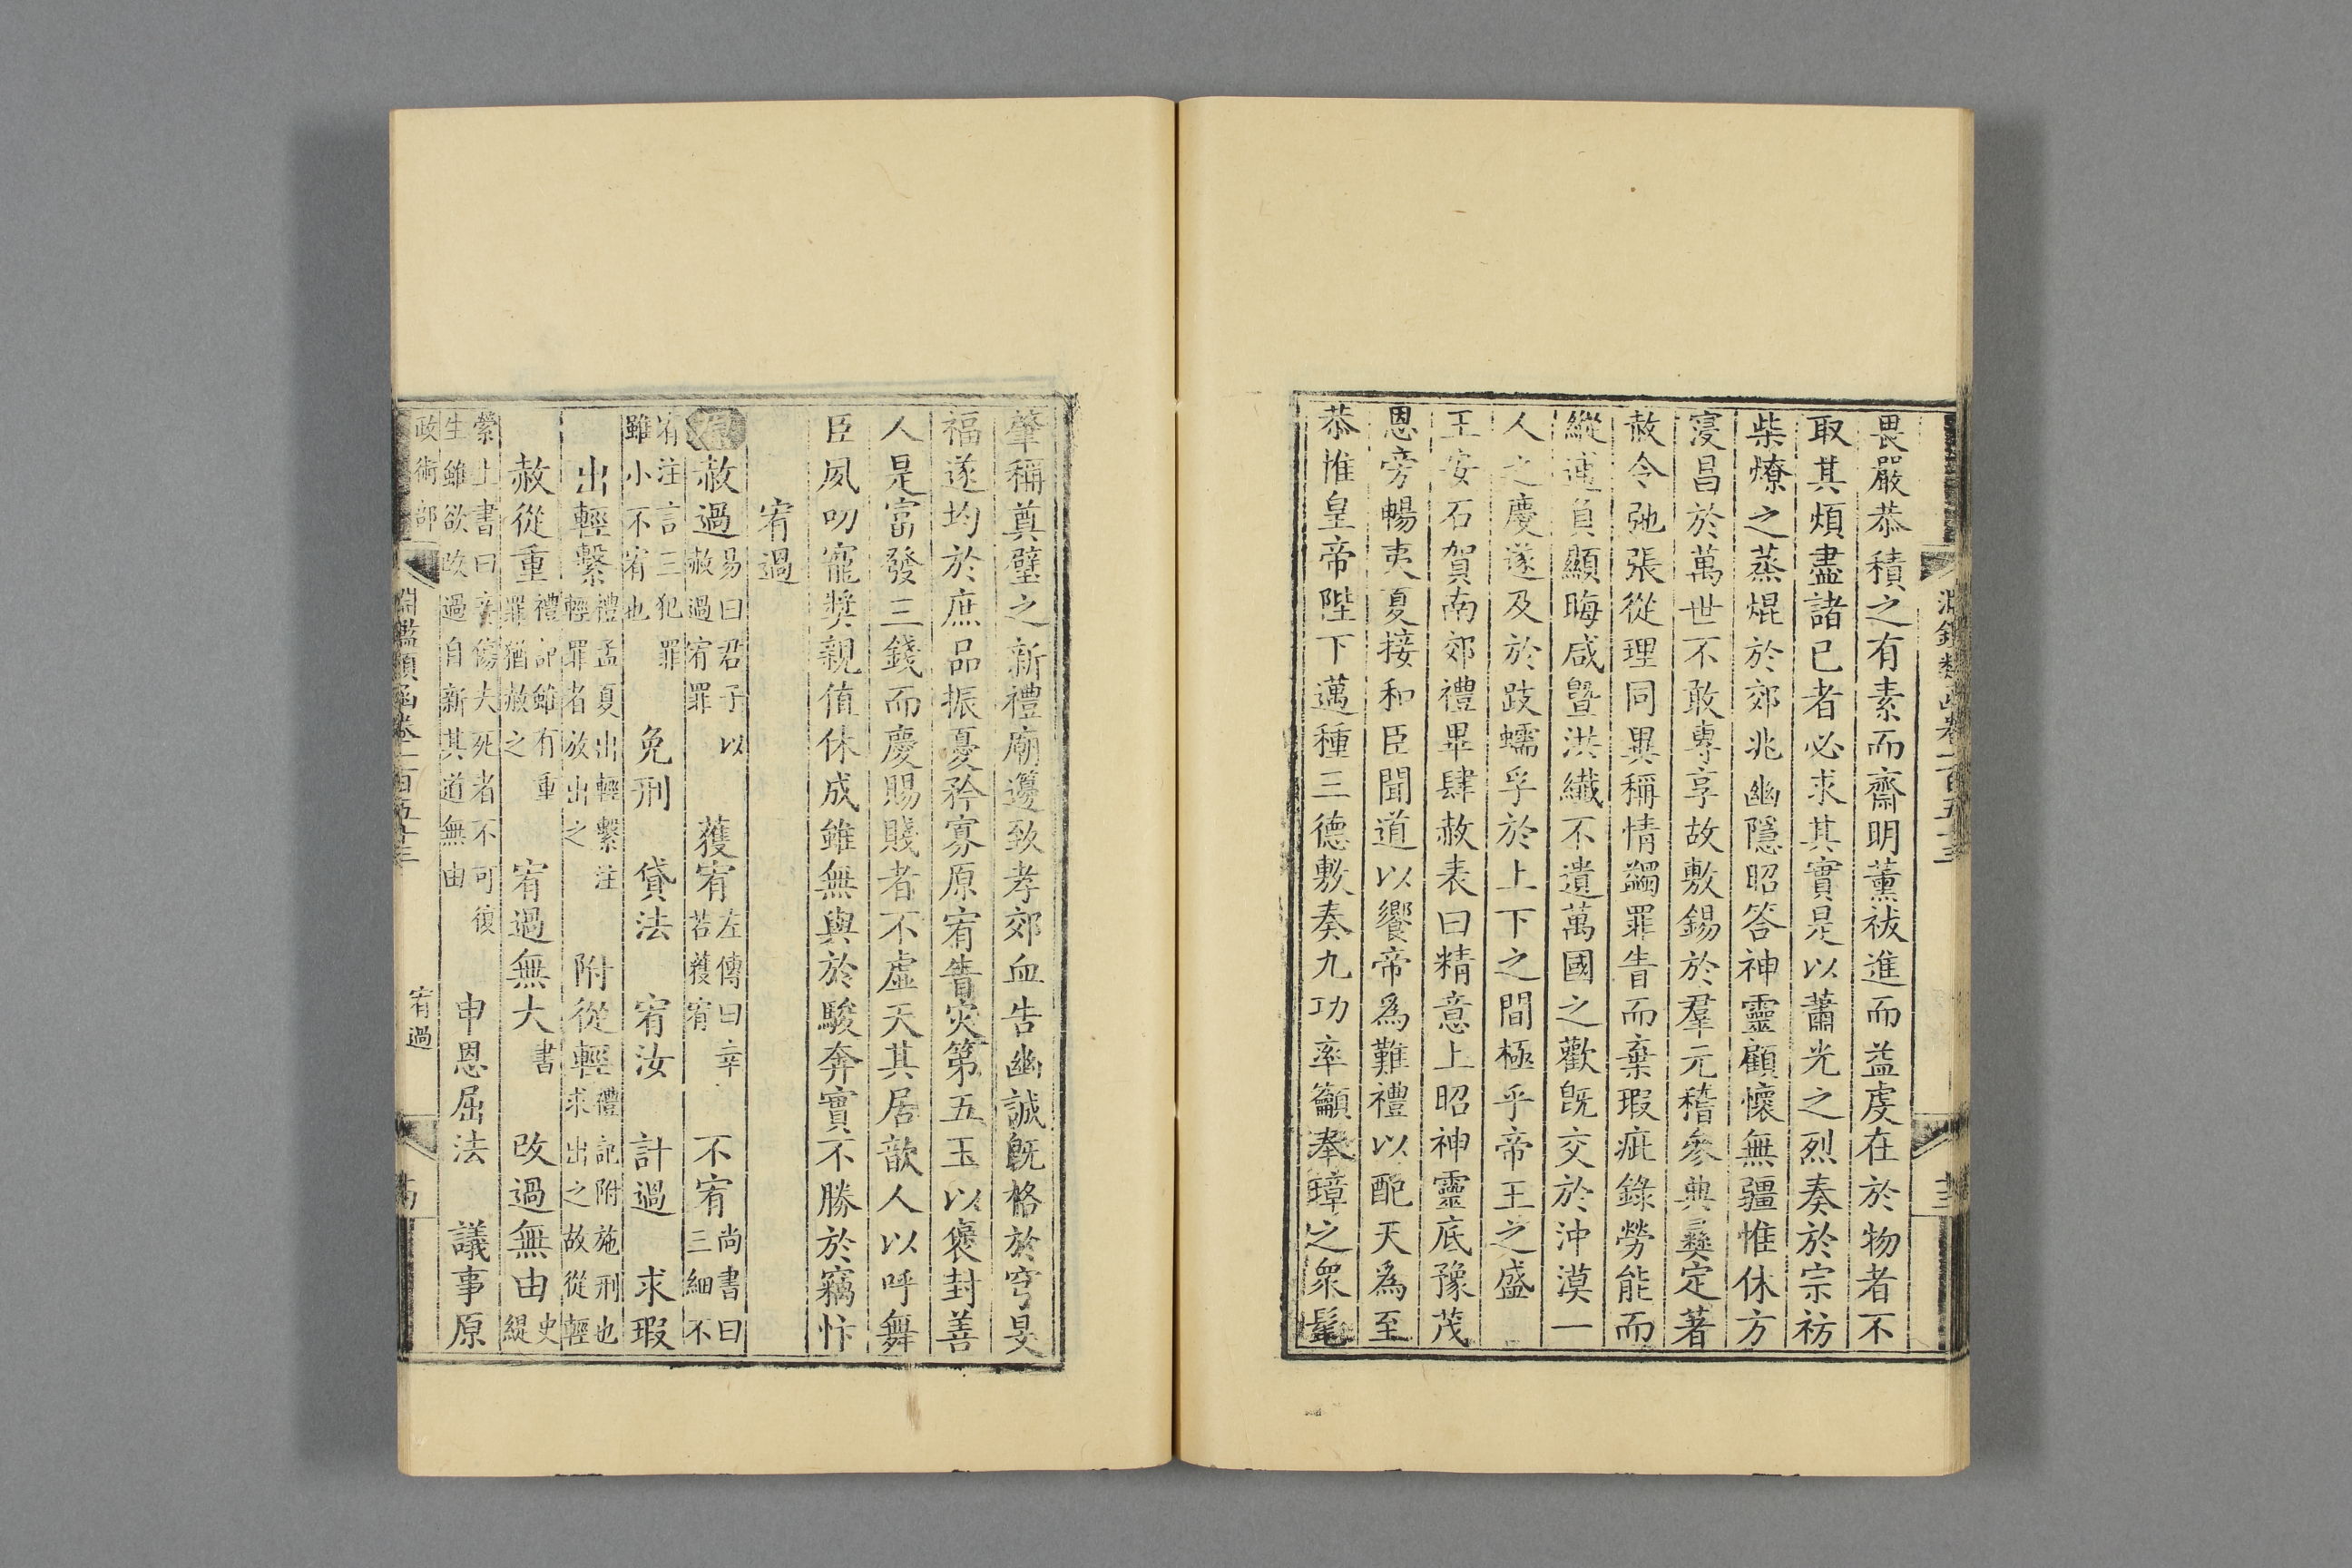 淵鑑類函卷一百五十三
畏嚴恭積之有素而齋明薰祓進而益虔在於物者不
取其煩盡諸已者必求其實是以蕭光之烈奏於宗祊
柴燎之蒸焜於郊兆幽隱昭答神靈顧懷無疆惟休方
寖昌於萬世不敢專享故敷錫於羣元稽參典彝定著
赦令弛張從理同異稱情蠲罪眚而棄瑕疵錄勞能而
縱逋負顯晦咸曁洪纎不遺萬國之歡旣交於沖漠一
人之慶遂及於跂蠕孚於上下之間極乎帝王之盛
王安石賀南郊禮畢肆赦表曰精意上昭神靈底豫茂
恩旁暢夷夏接和臣聞道以饗帝爲難禮以配天爲至
恭惟皇帝陛下邁種三德敷奏九功率籲奉璋之衆髦
肇稱奠璧之新禮廟邊致孝郊血告幽誠旣格於穹旻
福遂均於庶品振憂矜寡原宥眚災第五玉以褒封善
人是富發三錢而慶賜賤者不虛天其居歆人以呼舞
臣夙叨寵奬親值休成雖無與於駿奔實不勝於竊忭
宥過
赦過易曰君子以赦過宥罪 獲宥左傳曰幸若獲宥 不宥尚書曰三細不
宥注言三犯罪雖小不宥也 免刑 貸法 宥汝 計過 求瑕
出輕繫禮孟夏出輕繫注輕罪者放出之 附從輕禮記附施刑也求出之故從輕
赦從重禮記雖有重罪猶赦之 宥過無大書 改過無由史緹
縈上書曰妾傷夫死者不可復生雖欲改過自新其道無由 申恩屈法 議事原
政術部 淵鑑類函卷一百五十三 宥過